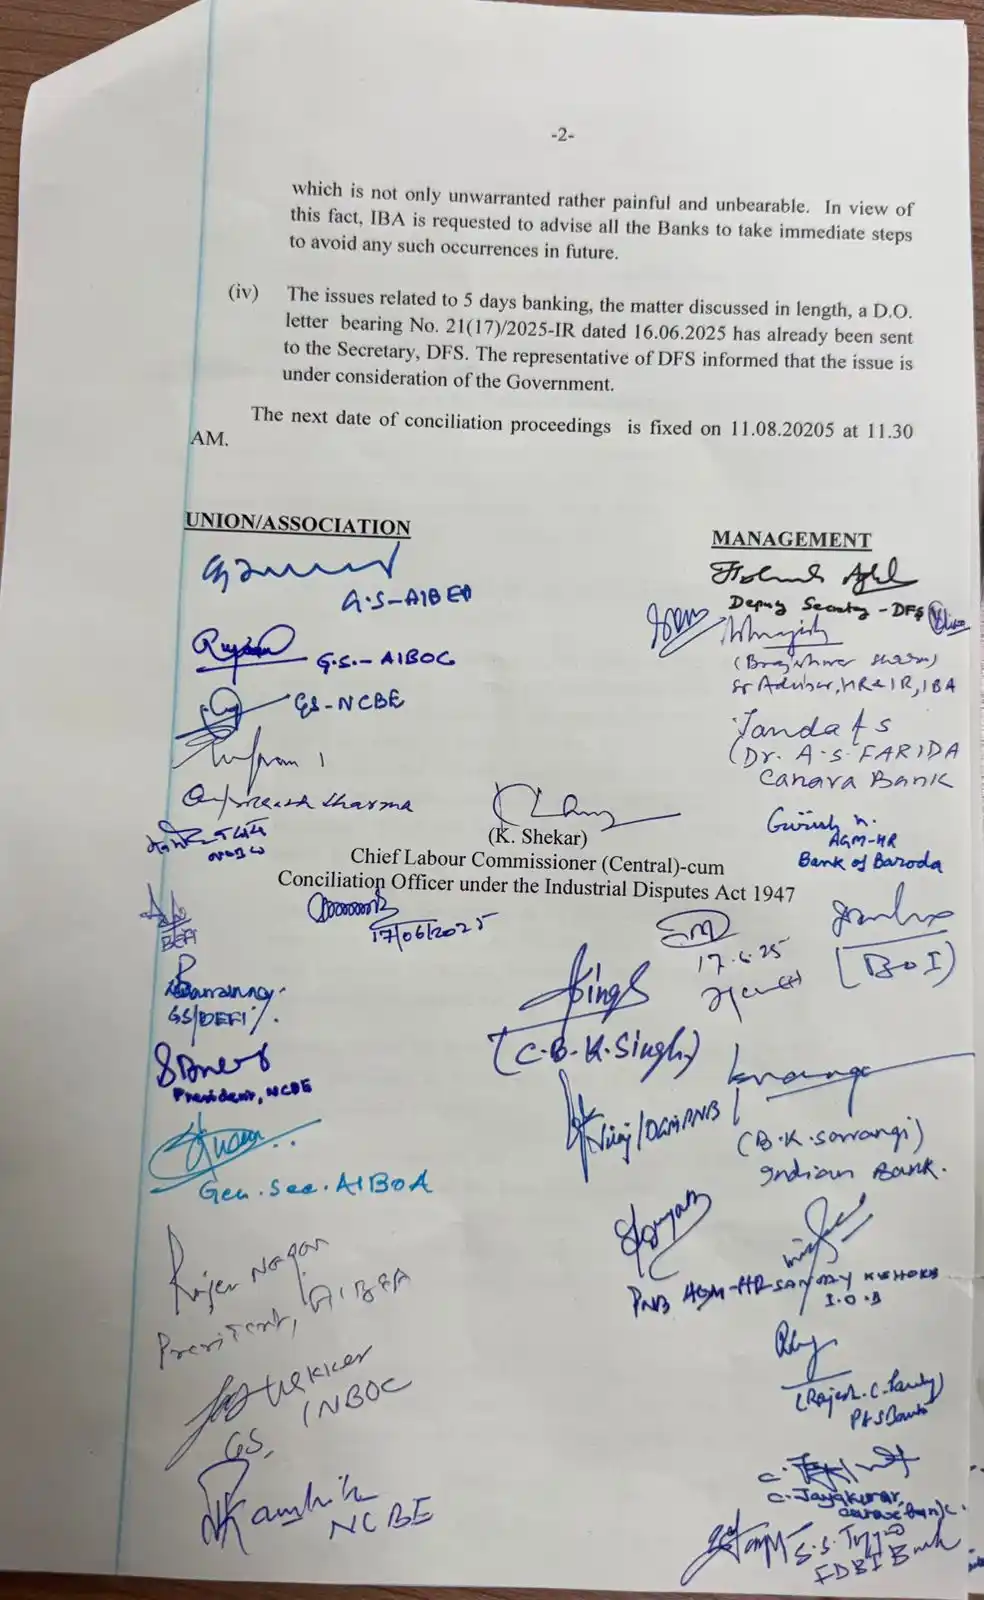 -2-
which is not only unwarranted rather painful and unbearable. In view of
this fact, IBA is requested to advise all the Banks to take immediate steps
to avoid any such occurrences in future.
(iv) The issues related to 5 days banking, the matter discussed in length, a D.O.
letter bearing No. 21(17)/2025-IR dated 16.06.2025 has already been sent
to the Secretary, DFS. The representative of DFS informed that the issue is
under consideration of the Government.
The next date of conciliation proceedings is fixed on 11.08.20205 at 11.30
AM.
UNION/ASSOCIATION
G.S-AIBEA
G.S.-AIBOC
GS-NCBE
Sharma
BEFI
GS/BEFI
President, NCBE
Gen. Sec. AIBOA
Rajen Nagar
President, AIBEA
GS, INBOC
NCBE
MANAGEMENT
Deputy Secretary-DFS
Sr Adviser, HR & IR, IBA
(Dr. A.S. FARIDA
Canara Bank
Girish
AGM-HR
Bank of Baroda
(K. Shekar)
Chief Labour Commissioner (Central)-cum
Conciliation Officer under the Industrial Disputes Act 1947
17/06/2025
17.6.25
(BOI)
Singh
(C.B.K. Singh)
/DGM PNB
(B.K. Sarangi)
Indian Bank.
PNB AGM-HR
SANJAY
I.O.B
(Rajesh C.
P&S Bank
C. Jayakumar,
S.S.
IDBI Bank